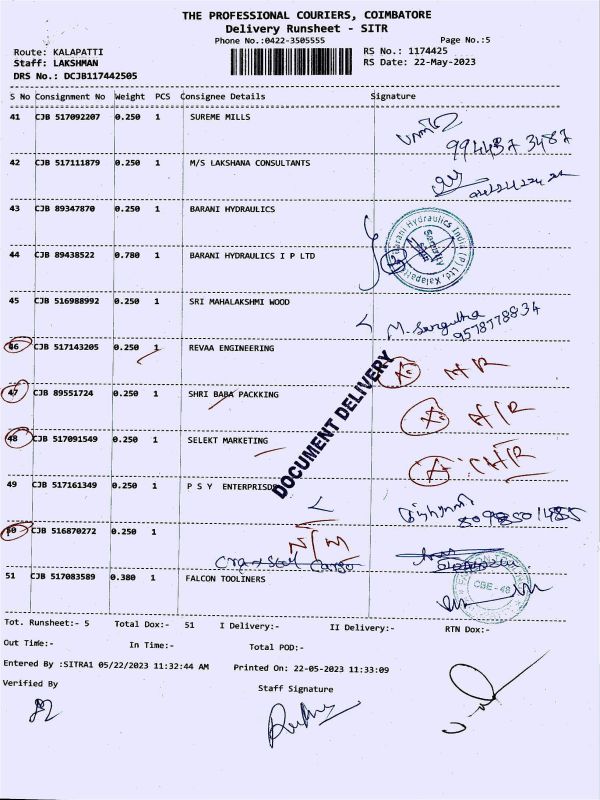 THE PROFESSIONAL COURIERS, COIMBATORE
Delivery Runsheet - SITR
Phone No.:0422-3505555 Page No.:5
Route: KALAPATTI RS No.: 1174425
Staff: LAKSHMAN RS Date: 22-May-2023
DRS No.: DCJB117442505
S No Consignment No Weight PCS Consignee Details Signature
41 CJB 517092207 0.250 1 SUREME MILLS
994437 3487
42 CJB 517111879 0.250 1 M/S LAKSHANA CONSULTANTS
43 CJB 89347870 0.250 1 BARANI HYDRAULICS
Barani Hydraulics India (P) Ltd. Kalapatti
Security
44 CJB 89438522 0.780 1 BARANI HYDRAULICS I P LTD
45 CJB 516988992 0.250 1 SRI MAHALAKSHMI WOOD
9578778834
46 CJB 517143205 0.250 1 REVAA ENGINEERING
47 CJB 89551724 0.250 1 SHRI BABA PACKKING
DOCUMENT DELIVERY
48 CJB 517091549 0.250 1 SELEKT MARKETING
49 CJB 517161349 0.250 1 P S Y ENTERPRISDS
50 CJB 516870272 0.250 1
N/M
51 CJB 517083589 0.380 1 FALCON TOOLINERS
CBE - 48
Tot. Runsheet:- 5 Total Dox:- 51 I Delivery:- II Delivery:- RTN Dox:-
Out Time:- In Time:- Total POD:-
Entered By :SITRA1 05/22/2023 11:32:44 AM Printed On: 22-05-2023 11:33:09
Verified By Staff Signature